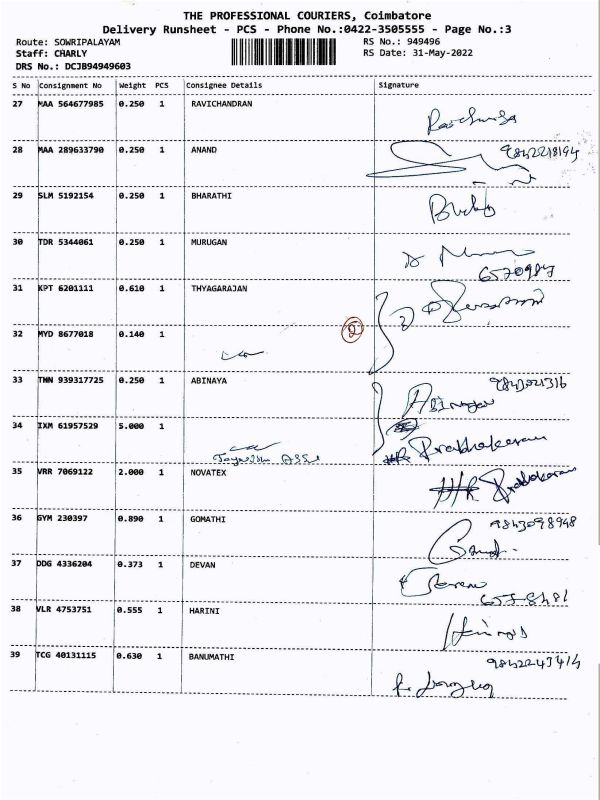 THE PROFESSIONAL COURIERS, Coimbatore
Delivery Runsheet - PCS - Phone No.:0422-3505555 - Page No.:3
Route: SOWRIPALAYAM RS No.: 949496
Staff: CHARLY RS Date: 31-May-2022
DRS No.: DCJB94949603
S No Consignment No Weight PCS Consignee Details Signature
27 MAA 564677985 0.250 1 RAVICHANDRAN
28 MAA 289633790 0.250 1 ANAND 9842218194
29 SLM 5192154 0.250 1 BHARATHI
30 TDR 5344061 0.250 1 MURUGAN
31 KPT 6201111 0.610 1 THYAGARAJAN
32 MYD 8677018 0.140 1 2
33 TMN 939317725 0.250 1 ABINAYA
34 IXM 61957529 5.000 1 Prabhakaran
35 VRR 7069122 2.000 1 NOVATEX Prabakaran
36 GYM 230397 0.890 1 GOMATHI 9843098948
37 DDG 4336204 0.373 1 DEVAN
38 VLR 4753751 0.555 1 HARINI
39 TCG 40131115 0.630 1 BANUMATHI